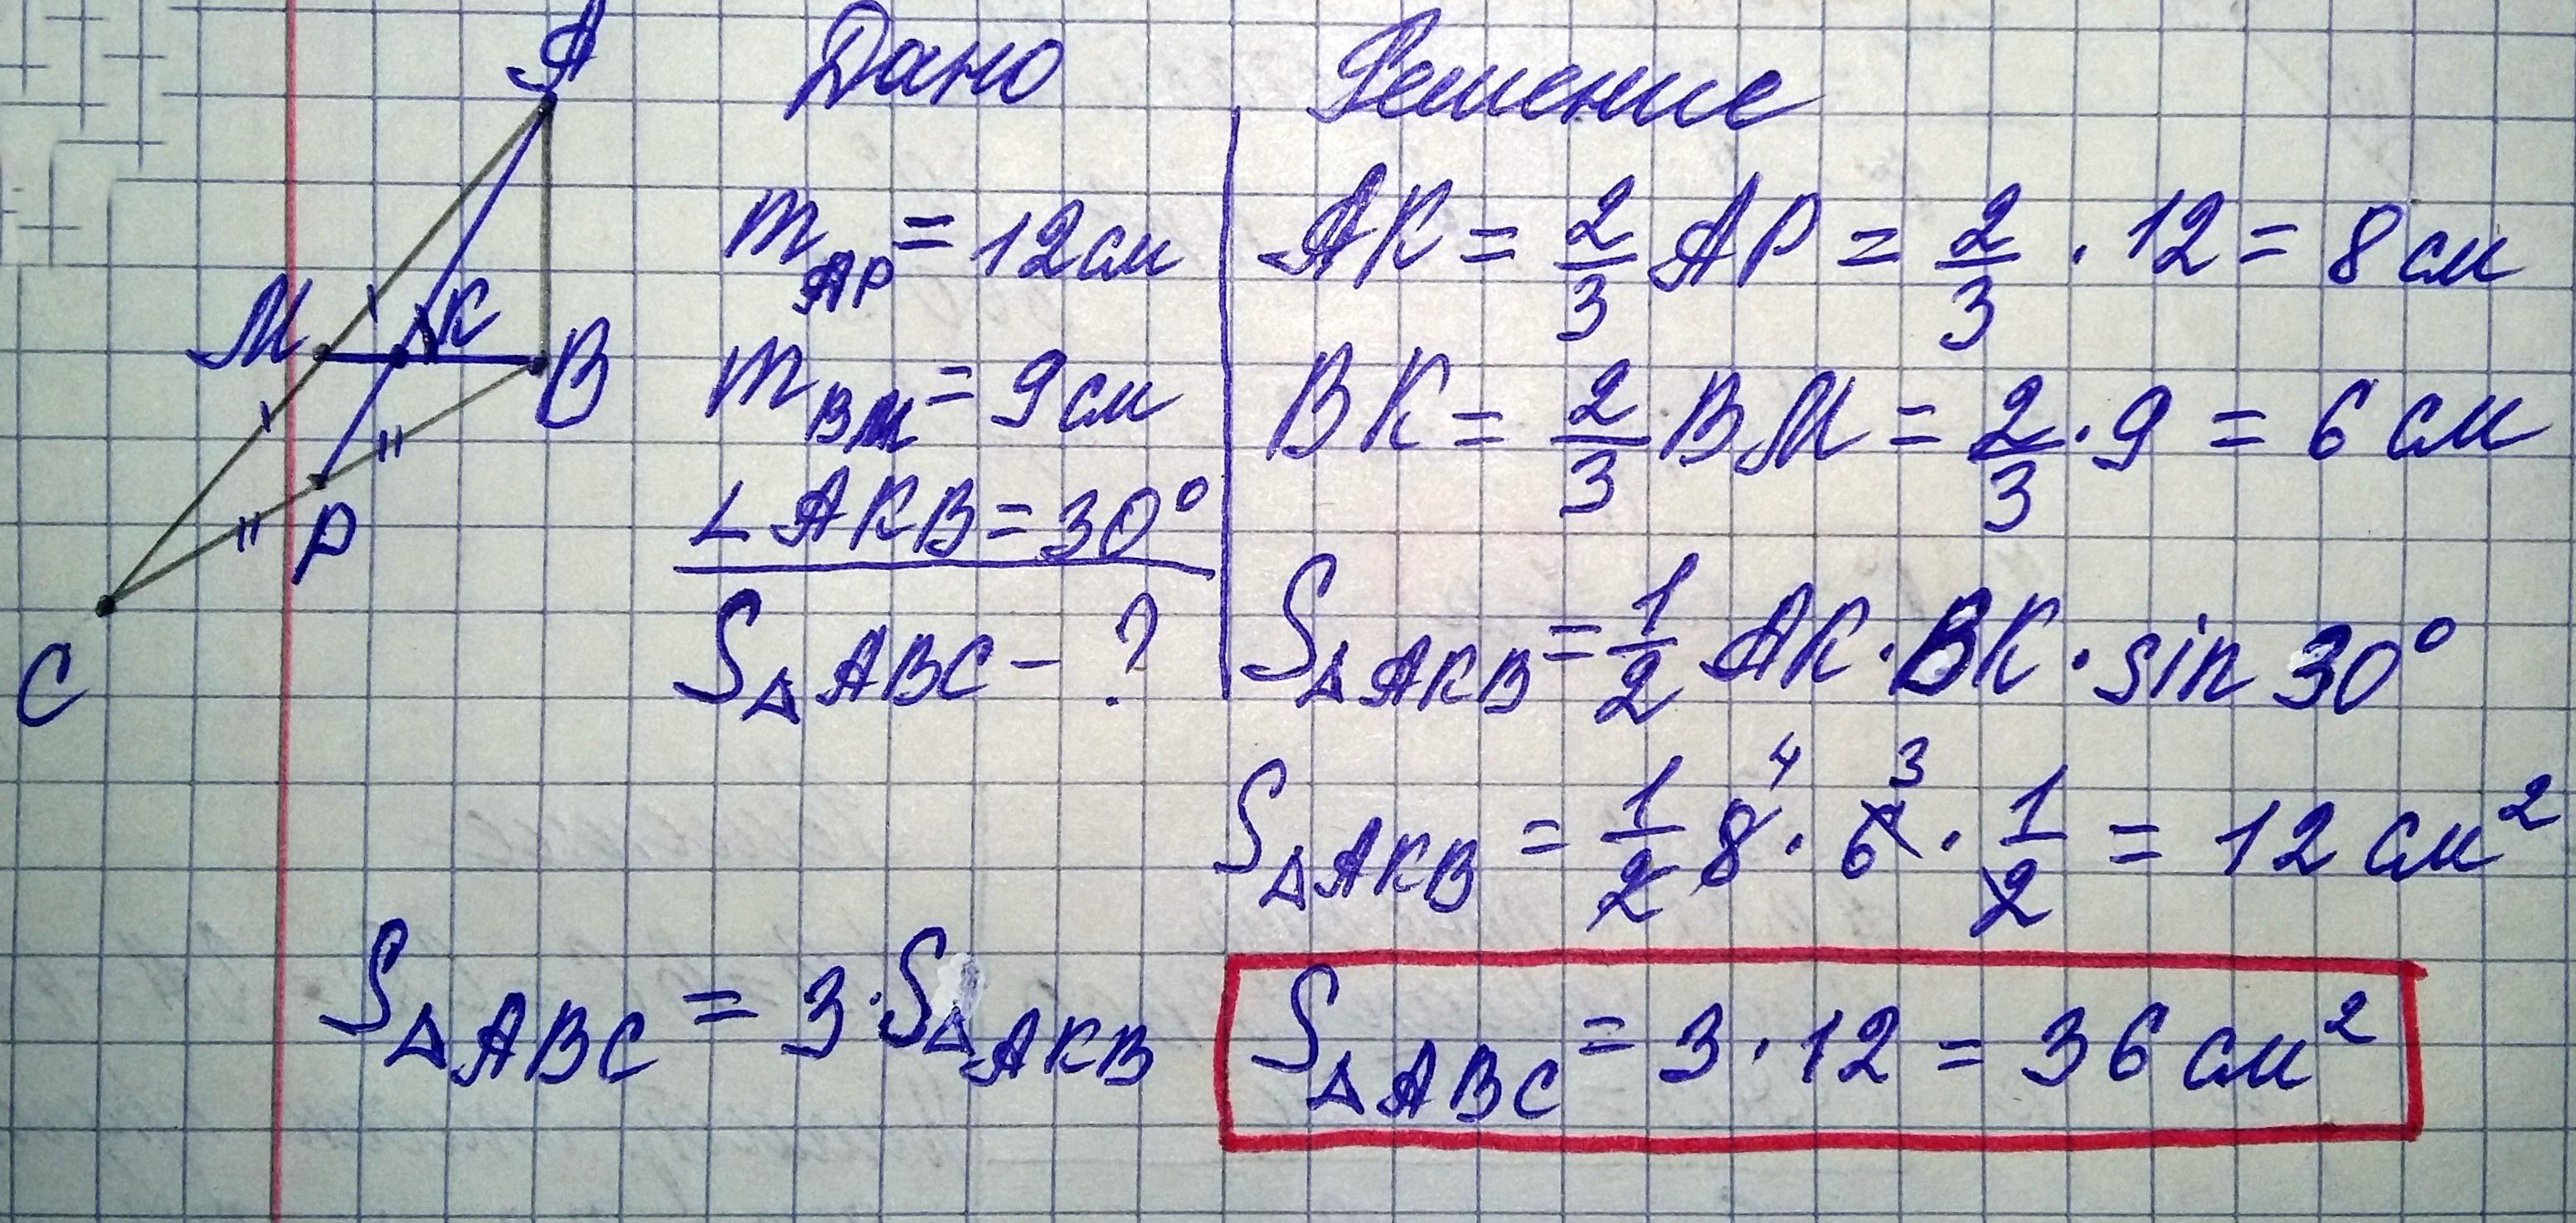 A
M
K
B
P
C
Дано
m_AP = 12 см
m_BM = 9 см
∠AKB = 30°
S△ABC - ?
Решение
AK = 2/3 AP = 2/3 · 12 = 8 см
BK = 2/3 BM = 2/3 · 9 = 6 см
S△AKB = 1/2 AK · BK · sin 30°
4 3
S△AKB = 1/2 8 · 6 · 1/2 = 12 см²
S△ABC = 3 · S△AKB
S△ABC = 3 · 12 = 36 см²